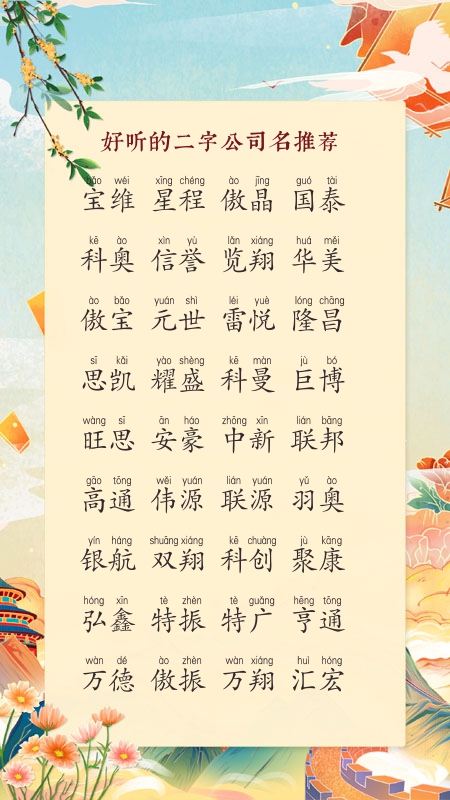 好听的二字公司名推荐
bǎo wéi xīng chéng ào jīng guó tài
宝维 星程 傲晶 国泰
kē ào xìn yù lǎn xiáng huá měi
科奥 信誉 览翔 华美
ào bǎo yuán shì léi yuè lóng chāng
傲宝 元世 雷悦 隆昌
sī kǎi yào shèng kē màn jù bó
思凯 耀盛 科曼 巨博
wàng sī ān háo zhōng xīn lián bāng
旺思 安豪 中新 联邦
gāo tōng wěi yuán lián yuán yǔ ào
高通 伟源 联源 羽奥
yín háng shuāng xiáng kē chuàng jù kāng
银航 双翔 科创 聚康
hóng xīn tè zhèn tè guǎng hēng tōng
弘鑫 特振 特广 亨通
wàn dé ào zhèn wàn xiáng huì hóng
万德 傲振 万翔 汇宏